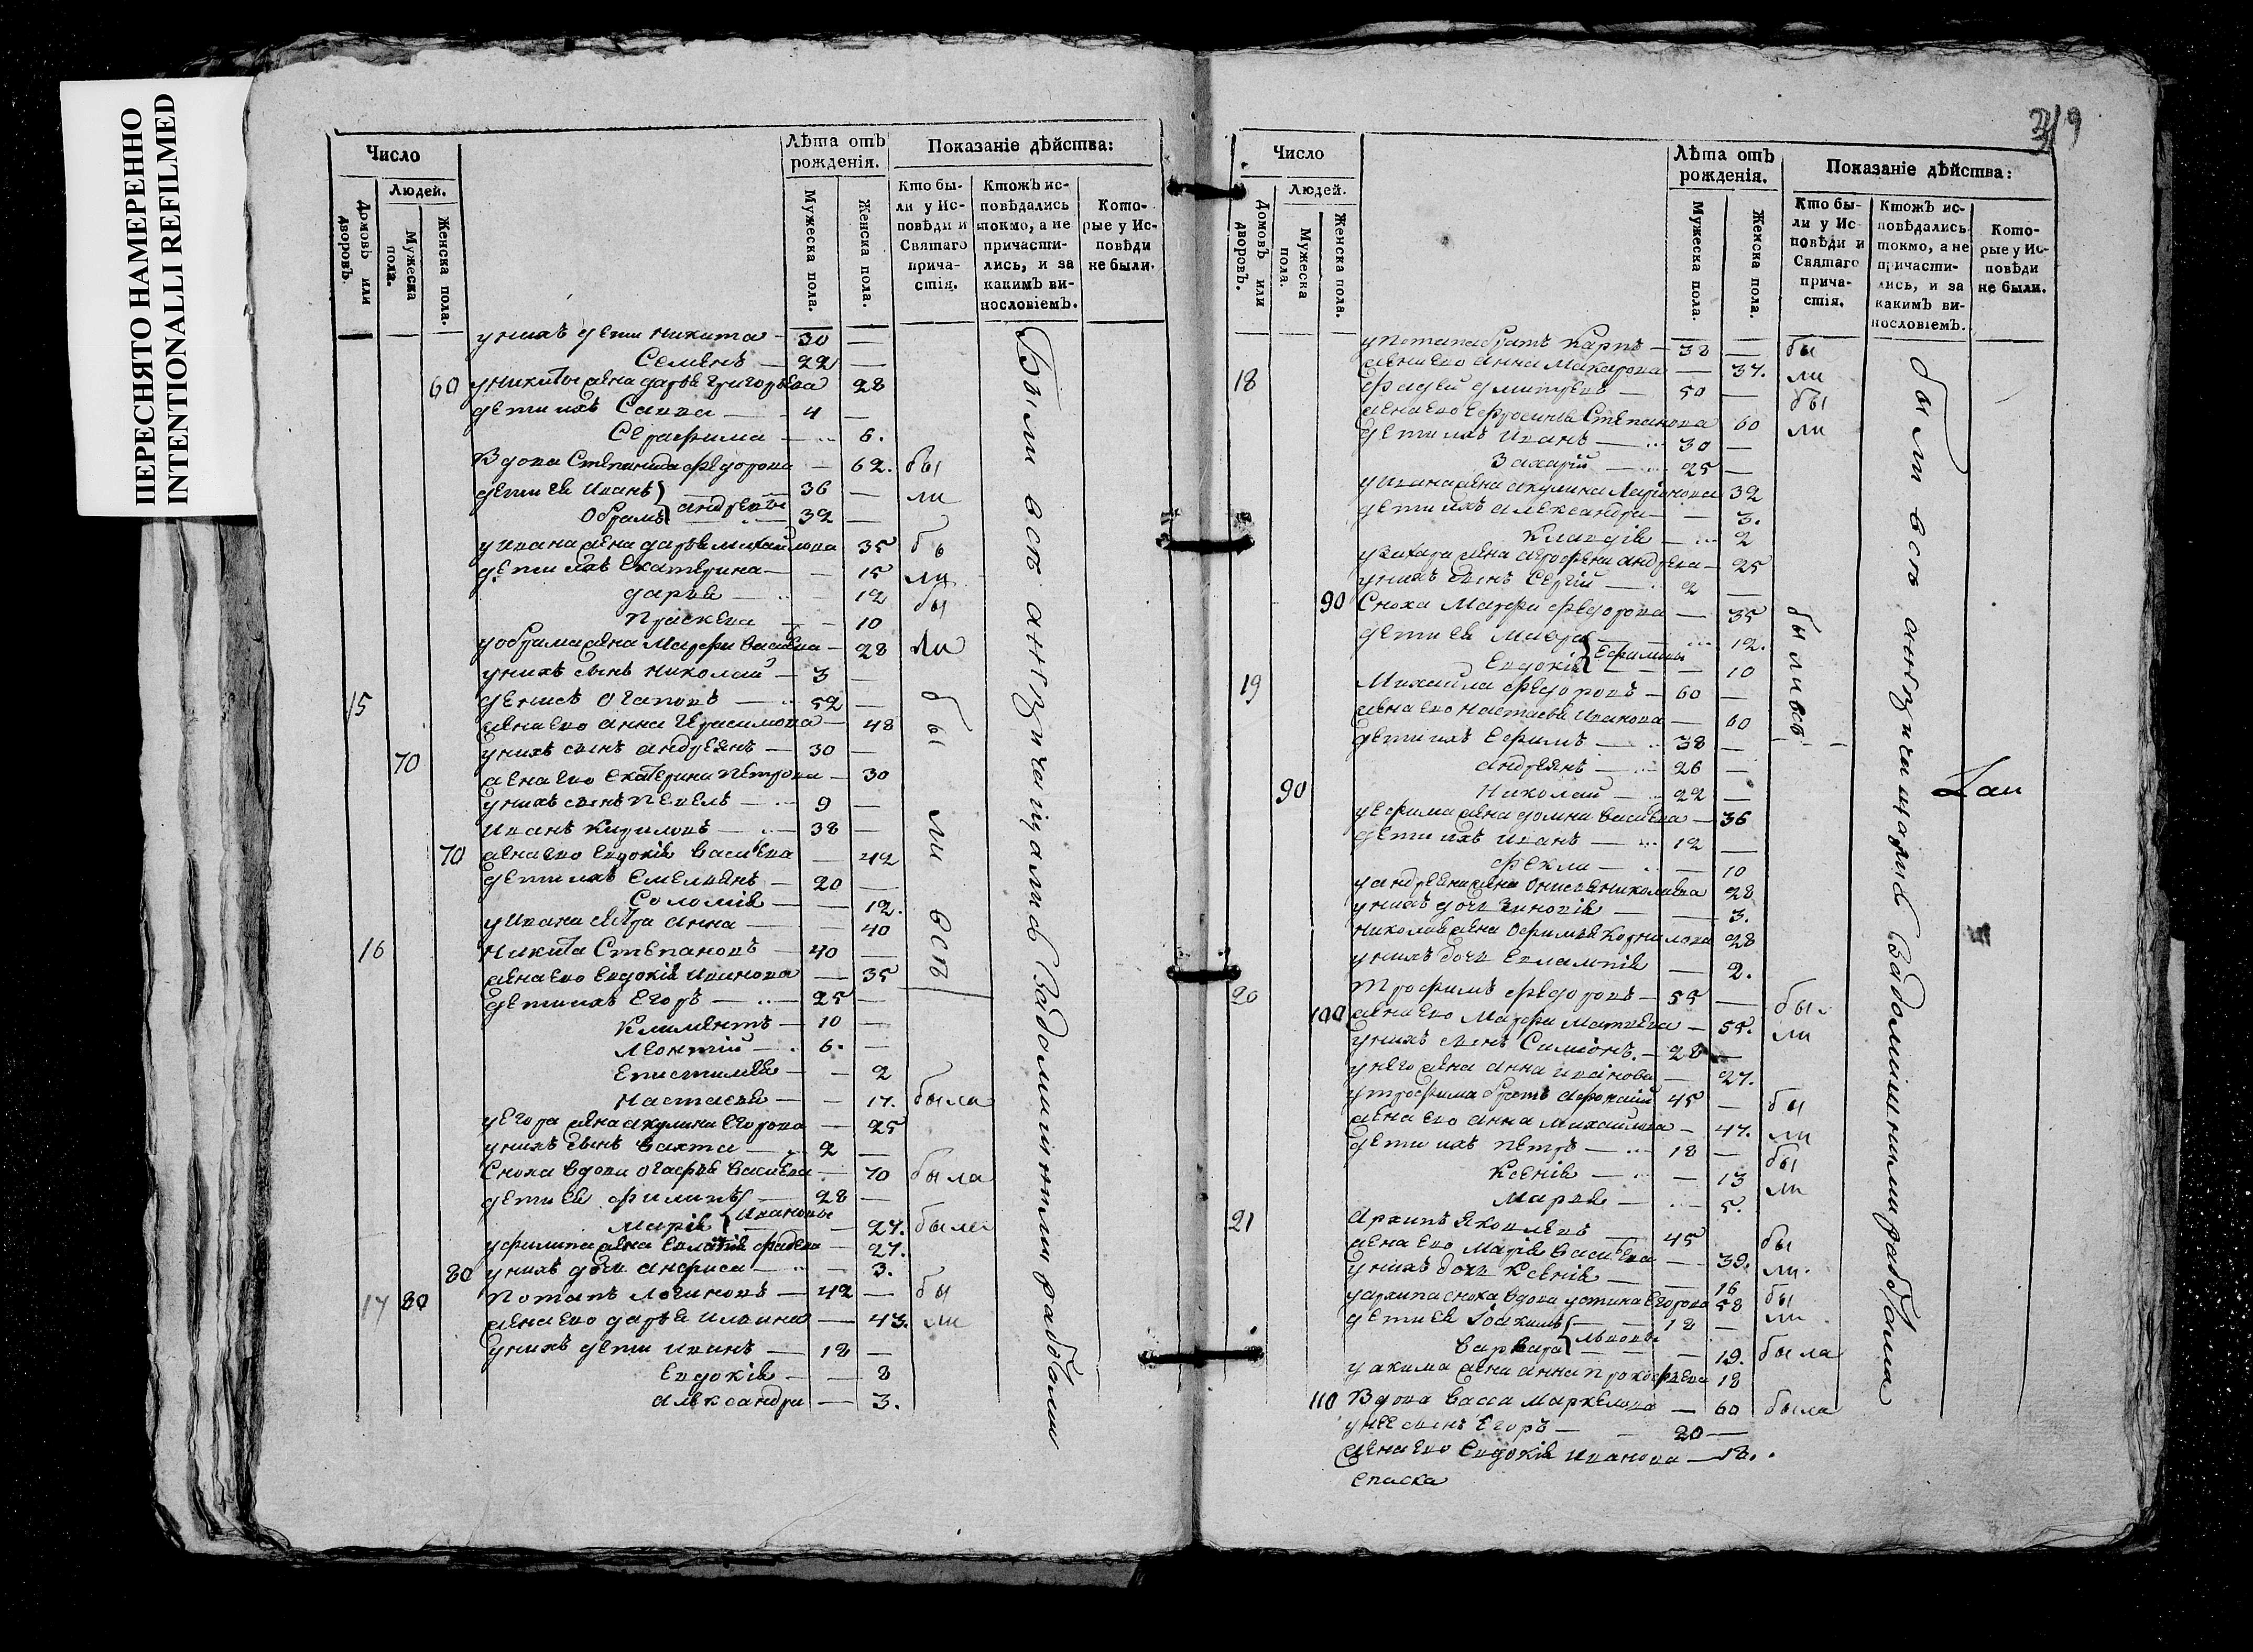 ПЕРЕСНЯТО НАМЕРЕННО
INTENTIONALLI REFILMED
Число
Лѣта отъ рожденія.
Показаніе дѣйства:
Домовъ или дворовъ.
Людей.
Мужеска пола.
Женска пола.
Мужеска пола.
Женска пола.
Кто были у Исповѣди и Святаго причастія.
Ктожъ исповѣдались токмо, а не причастились, и за какимъ винословіемъ.
Которые у Исповѣди не были.
у нихъ дети Никита — 30 —
Семенъ — 22 —
60 у Никиты жена дарья григорьева 28
дети ихъ Савва — 4 —
Серафима — 6.
Вдова Степанида федорова — 62. бы
дети ея Иванъ 36 — ли
Обрамъ андреевы 32 —
у Ивана жена дарья михайлова 35 бы
дети ихъ Екатерина — 15 ли
дарья — 12 бы
Праскева — 10
у обрама жена Марфа Васильева — 28 ли
у нихъ сынъ Николай — 3 —
15 денисъ Огаповъ — 52 —
жена ево анна Герасимова — 48
70 у нихъ сынъ андреянъ — 30 —
жена ево екатерина петрова — 30
у нихъ сынъ Павелъ — 9 —
Иванъ Кириловъ — 38 —
70 жена ево евдокія Васильева — 42
дети ихъ Емельянъ — 20 —
Соломія — 12.
у Ивана сестра анна — 40
16 Никита Степановъ — 40 —
жена ево Евдокія Иванова — 35
дети ихъ Егоръ — 25 —
Климентъ — 10 —
Леонтій — 6. —
Епистимия — 2
Настасья — 17. была
у Егора жена акулина Егорова — 25
у нихъ сынъ — 2 —
Сноха вдова огафья Васильева — 70 была
дети ея филипъ 28 —
Марія Ивановы — 27. была
у филипа жена фадеева — 27.
80 у нихъ дочь анфиса — 3.
17 80 Потапъ Логиновъ — 42 — бы
жена ево дарья Ильина — 43. ли
у нихъ дети Иванъ — 18 —
Евдокія — 8
александра — 3.
бы ли всѣ
Были всѣ
319
Число
Лѣта отъ рожденія.
Показаніе дѣйства:
Домовъ или дворовъ.
Людей.
Мужеска пола.
Женска пола.
Мужеска пола.
Женска пола.
Кто были у Исповѣди и Святаго причастія.
Ктожъ исповѣдались токмо, а не причастились, и за какимъ винословіемъ.
Которые у Исповѣди не были.
у Потапа братъ Карпъ — 38 — бы
жена ево анна Макарова — 37. ли
18 фадей дмитревъ — 50 — бы
жена ево Ефросинья Степанова 60 ли
дети ихъ Иванъ — 30 —
Захарій — 25 —
у Ивана жена акулина Ларіонова 32
дети ихъ александра — 3.
Клавдія — 2
у Захара жена агрофена андреева — 25
у нихъ сынъ Сергій — 2 —
90 Сноха Марфа федорова — 35
дети ея — 12.
Евдокія Ефимовы — 10
былився
19 Михайла федоровъ — 60 —
жена ево Настасья Иванова — 60
дети ихъ Ефимъ — 38 —
андреянъ — 26 —
90 Николай — 22 —
у Ефима жена домна Васильева — 36
дети ихъ Иванъ — 12 —
фекла — 10
у андреяна жена Николаева 28
у нихъ дочь Зиновія — 3.
Николая жена Офимья Корнилова 28
у нихъ дочь Евлампія — 2.
20 Трофимъ федоровъ — 55 — бы
100 жена ево Марфа Матвеева — 55. ли
у нихъ сынъ Симіонъ. — 28 —
у него жена анна Иванова — 27.
у трофима братъ афонасій 45 — бы
жена ево анна Михайлова — 47. ли
дети ихъ Петръ — 18 — бы
Ксенія — 13 ли
Марья — 5.
21 Архипъ Яковлевъ — 45 бы
жена ево Марія Васильева — 39. ли.
у нихъ дочь Ксенія — 16
у архипа сноха вдова устина Егорова 58 бы
дети ея Іоакимъ — 18 — ли
Варвара Львовы — 19. была
у акима жена анна Прокофьева 18
110 Вдова Васса Маркелова — 60 была
у нее сынъ Егоръ — 20 —
жена ево Евдокія Иванова — 18.
были всѣ